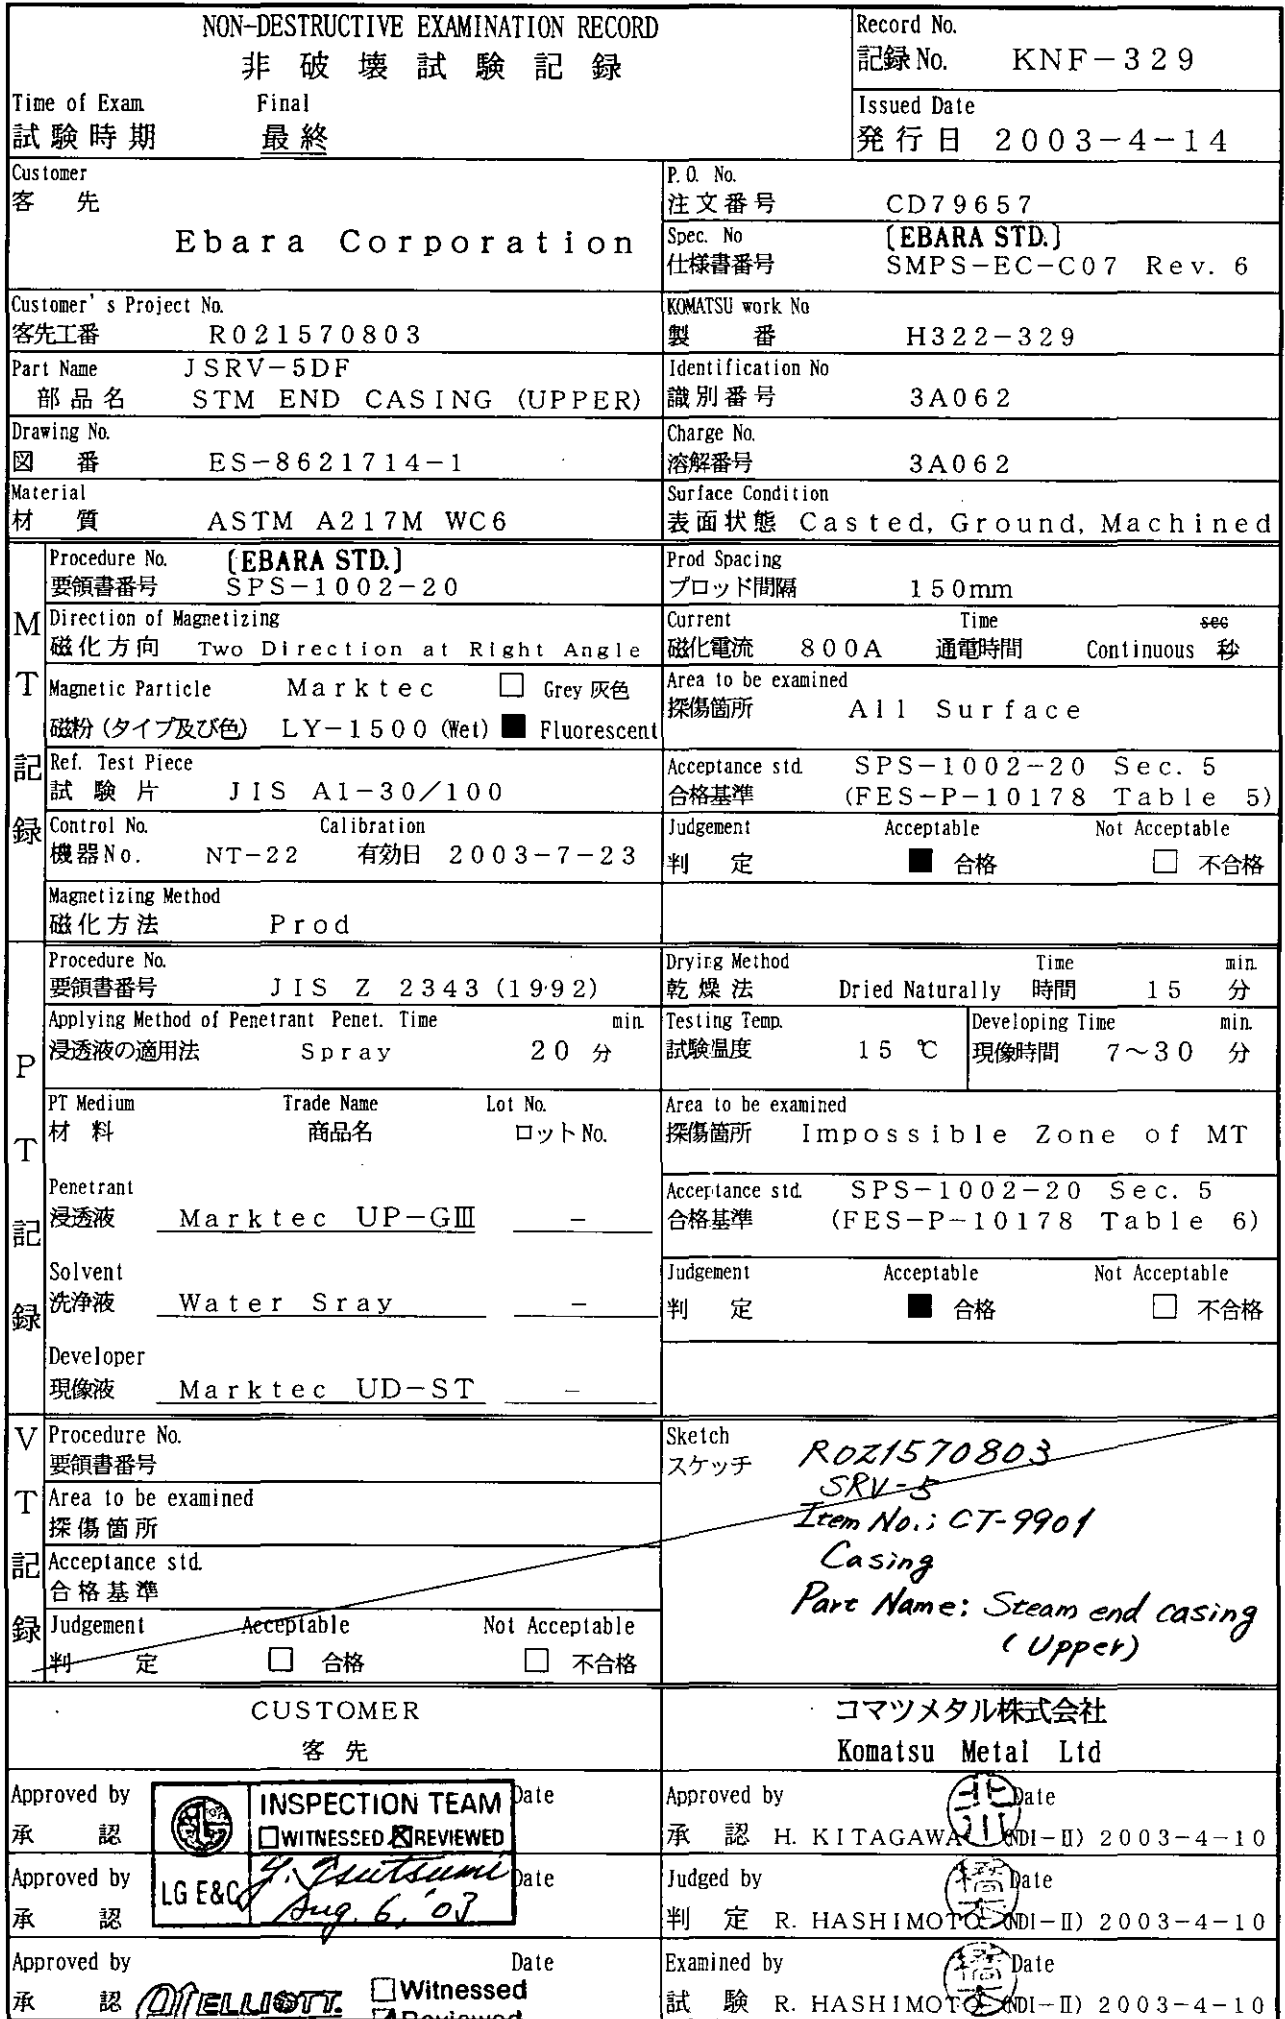 NON-DESTRUCTIVE EXAMINATION RECORD
非破壊試験記録
Time of Exam. Final
試験時期 最終
Record No.
記録No. KNF-329
Issued Date
発行日 2003-4-14
Customer
客先
Ebara Corporation
P.O. No.
注文番号 CD79657
Spec. No [EBARA STD.]
仕様書番号 SMPS-EC-C07 Rev. 6
Customer's Project No.
客先工番 R021570803
KOMATSU work No
製番 H322-329
Part Name JSRV-5DF
部品名 STM END CASING (UPPER)
Identification No
識別番号 3A062
Drawing No.
図番 ES-8621714-1
Charge No.
溶解番号 3A062
Material
材質 ASTM A217M WC6
Surface Condition
表面状態 Casted, Ground, Machined
MT記録
Procedure No. [EBARA STD.]
要領書番号 SPS-1002-20
Prod Spacing
プロッド間隔 150mm
Direction of Magnetizing
磁化方向 Two Direction at Right Angle
Current Time sec
磁化電流 800A 通電時間 Continuous 秒
Magnetic Particle Marktec □ Grey 灰色
磁粉(タイプ及び色) LY-1500 (Wet) ■ Fluorescent
Area to be examined
探傷箇所 All Surface
Ref. Test Piece
試験片 JIS A1-30/100
Acceptance std. SPS-1002-20 Sec. 5
合格基準 (FES-P-10178 Table 5)
Control No. Calibration
機器No. NT-22 有効日 2003-7-23
Judgement Acceptable Not Acceptable
判定 ■ 合格 □ 不合格
Magnetizing Method
磁化方法 Prod
PT記録
Procedure No.
要領書番号 JIS Z 2343 (1992)
Drying Method Time min.
乾燥法 Dried Naturally 時間 15 分
Applying Method of Penetrant Penet. Time min.
浸透液の適用法 Spray 20 分
Testing Temp.
試験温度 15 ℃
Developing Time min.
現像時間 7~30 分
PT Medium Trade Name Lot No.
材料 商品名 ロットNo.
Area to be examined
探傷箇所 Impossible Zone of MT
Penetrant
浸透液 Marktec UP-GⅢ -
Acceptance std. SPS-1002-20 Sec. 5
合格基準 (FES-P-10178 Table 6)
Solvent
洗浄液 Water Sray -
Judgement Acceptable Not Acceptable
判定 ■ 合格 □ 不合格
Developer
現像液 Marktec UD-ST -
VT記録
Procedure No.
要領書番号
Area to be examined
探傷箇所
Acceptance std.
合格基準
Judgement Acceptable Not Acceptable
判定 □ 合格 □ 不合格
Sketch
スケッチ
R021570803
SRV-5
Item No.; CT-9901
Casing
Part Name: Steam end casing
(Upper)
CUSTOMER
客先
コマツメタル株式会社
Komatsu Metal Ltd
Approved by Date
承認
LG E&C
INSPECTION TEAM
□WITNESSED ☒REVIEWED
Y. Tsutsumi
Aug. 6, '03
Approved by Date
承認 H. KITAGAWA (NDI-Ⅱ) 2003-4-10
北川
Approved by Date
承認
Judged by Date
判定 R. HASHIMOTO (NDI-Ⅱ) 2003-4-10
Approved by Date
承認
ELLIOTT.
□Witnessed
☑Reviewed
Examined by Date
試験 R. HASHIMOTO (NDI-Ⅱ) 2003-4-10